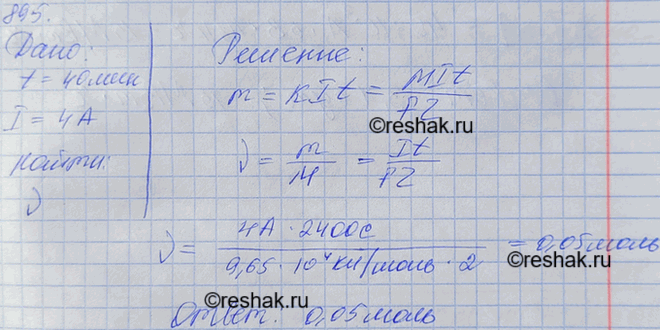 895.
Дано:
t = 40 мин
I = 4А
Найти:
ν
Решение:
m = kIt = MIt/FZ
©reshak.ru
ν = m/M = It/FZ
ν = 4А · 2400с / 9,65 · 10⁴ Кл/моль · 2 = 0,05 моль
©reshak.ru
©reshak.ru
Ответ: 0,05 моль